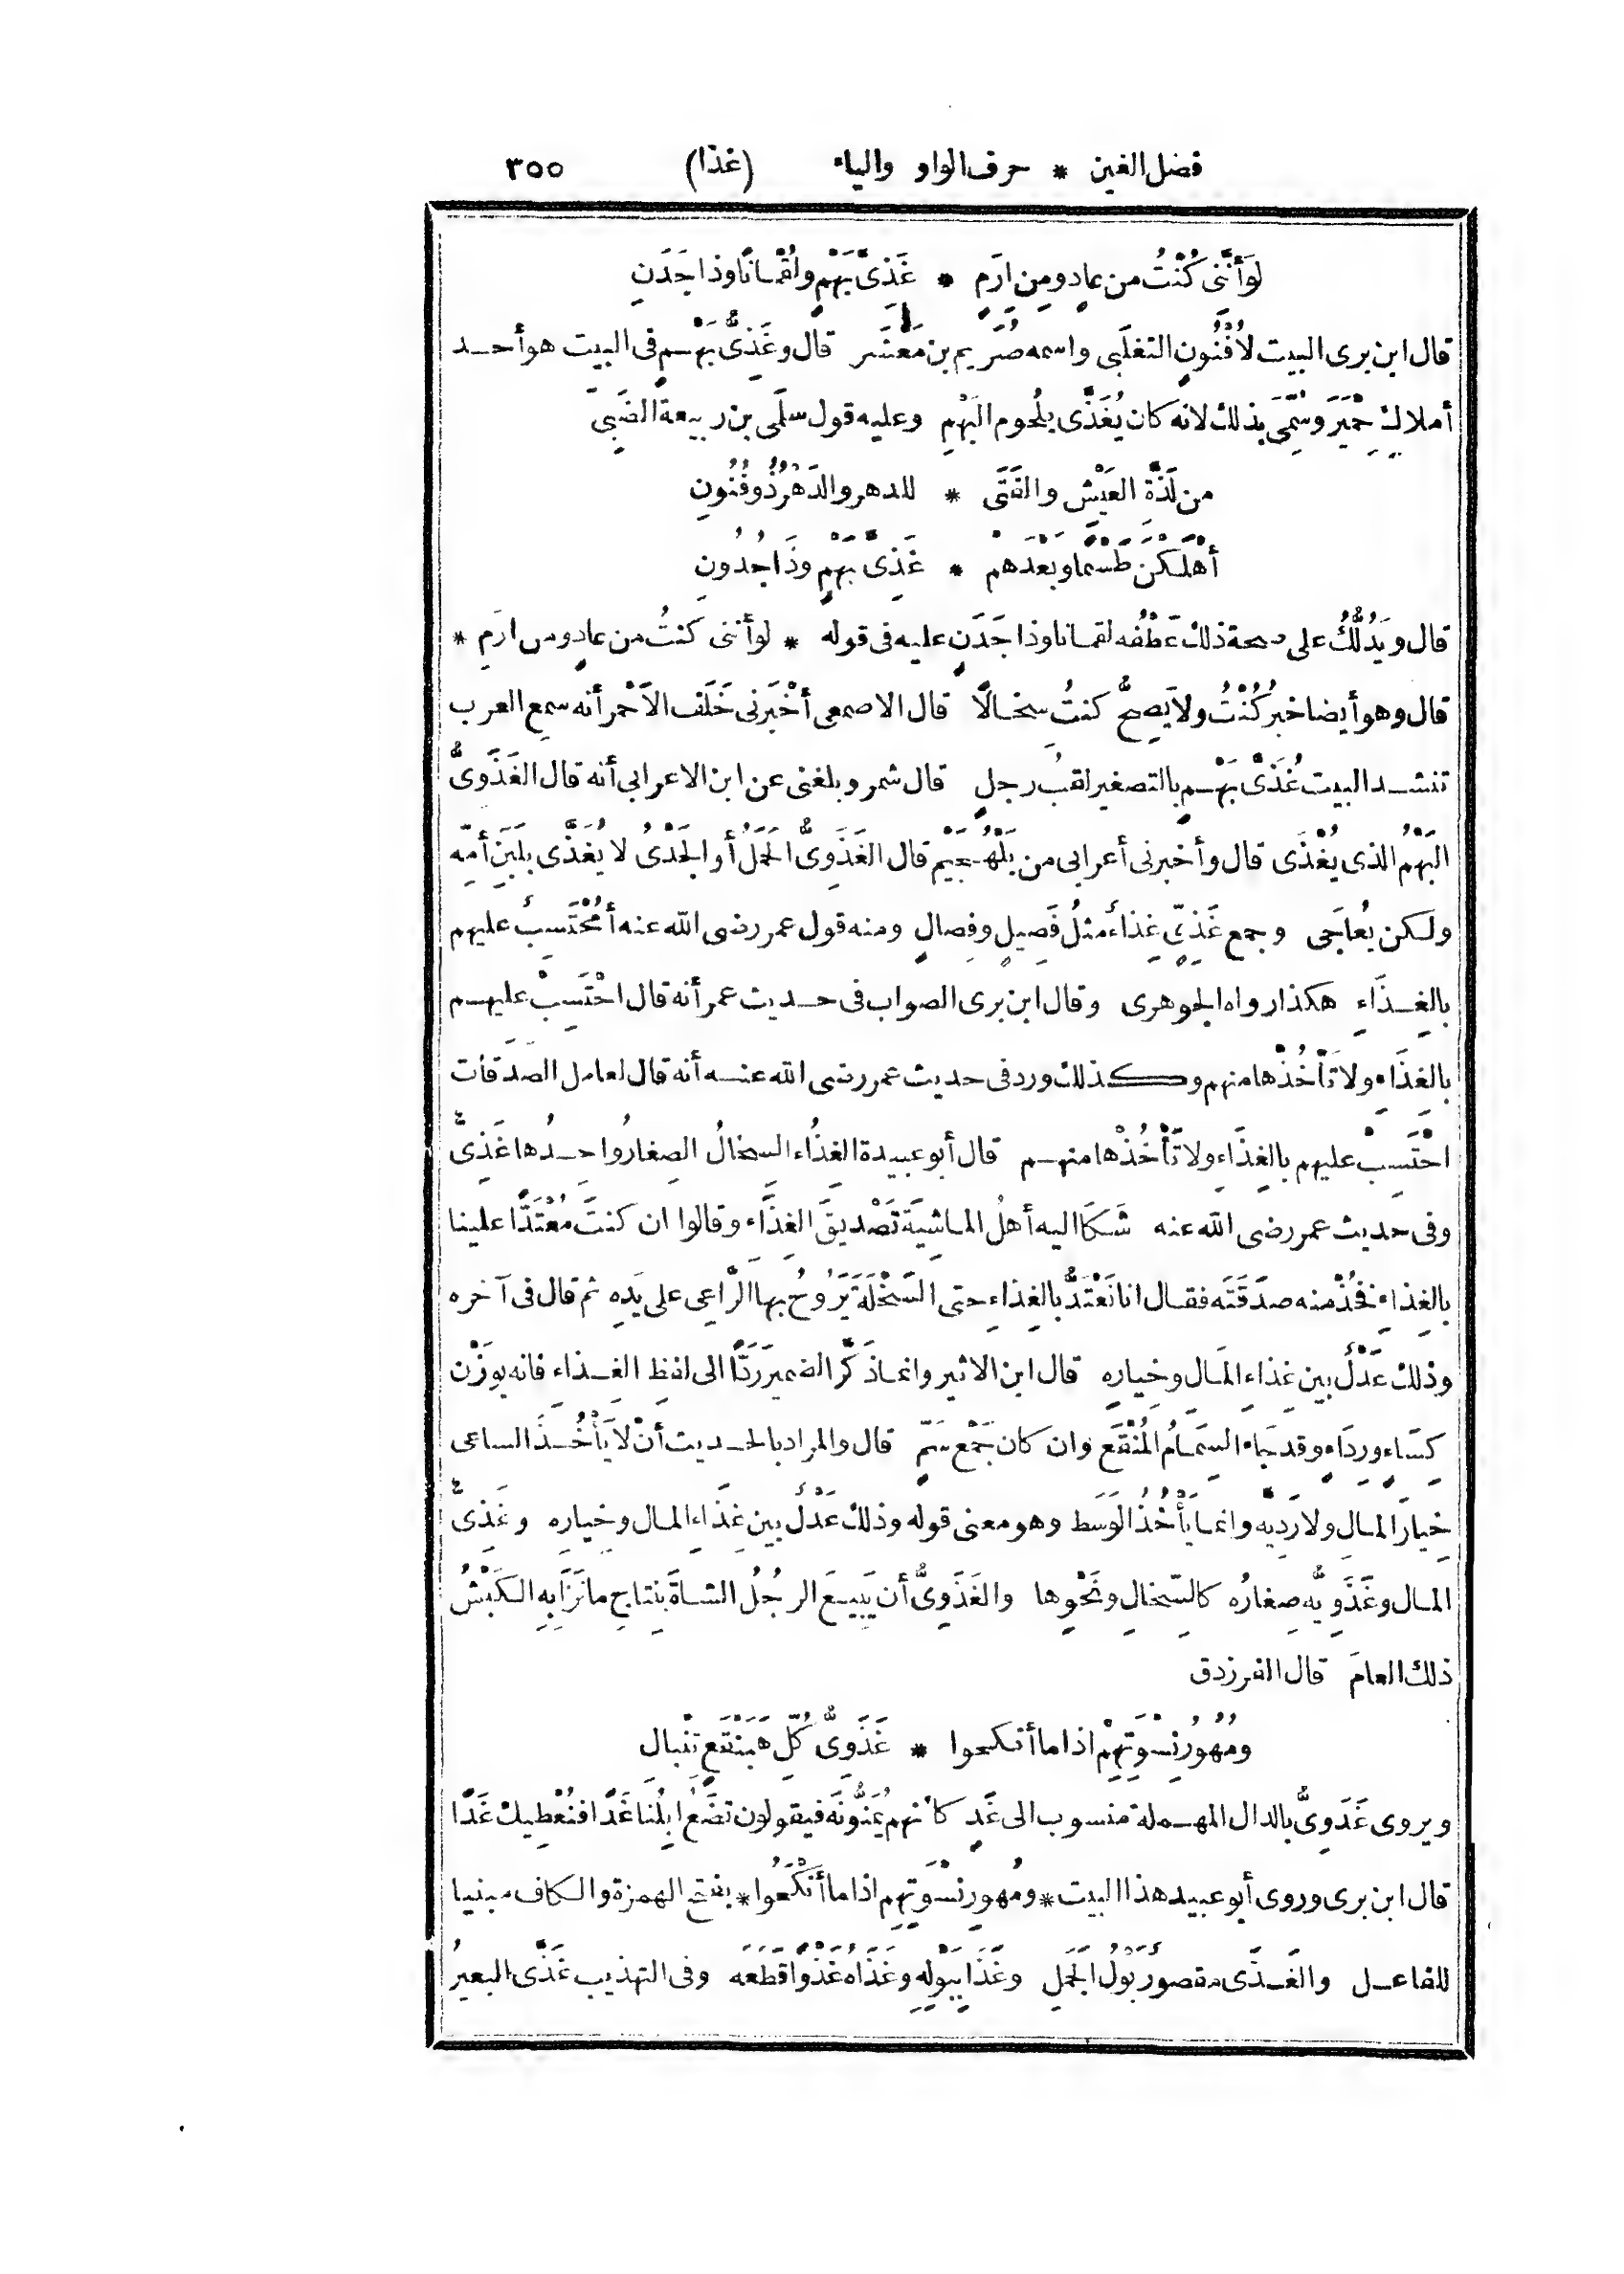 فصل الغين * حرف الواو والياء (غذا) ٣٥٥
لَوَ أَنَّنِى كُنْتُ من عادٍ ومِن اِرَمٍ * غَذِىَّ بَهْمٍ ولُقْمَانًا وذا جَدَنِ
قال ابن برى البيت لأُفْنُونٍ التغلَبى واسمه صُرَيم بن مَعْشَر قال وغَذِىُّ بَهْمٍ فى البيت هو أحد
أملاك حِمْيَر وسُمِّىَ بذلك لانه كان يُغَذَّى بلُحوم البَهْمِ وعليه قول سلمى بن ربيعة الضَّبِىّ
من لَذَّةِ العَيْش والفَتَى * للدهر والدَهْرُ ذُو فُنُونِ
أَهْلَكْنَ طَسْمًا وبَعْدَهُمْ * غَذِىَّ بَهْمٍ وذَا جُدُونِ
قال ويَدُلُّكُ على صحة ذلك عَطْفُه لقمانا وذا جَدَنٍ عليه فى قوله * لو أننى كنتُ من عادٍ ومن ارَمٍ *
قال وهو أيضا خبر كُنْتُ ولا يَصِحُّ كنتُ سخالًا قال الاصمعى أخْبَرنى خَلَف الاَحْمر أنه سمع العرب
تنشد البيت غُذَىَّ بَهْمٍ بالتصغير لقبُ رجلٍ قال شمر وبلغنى عن ابن الاعرابى أنه قال الغَذَوِىُّ
البَهْمُ الذى يُغْذَى قال وأخبرنى أعرابى من بَلْهُجَيْم قال الغَذَوِىُّ الحَمَلُ أو الجَدْىُ لا يُغَذَّى بلَبَنِ أمِّه
ولكن يُعاجَى وجمع غَذِىٍّ غِذاءٌ مثلُ فَصِيلٍ وفِصالٍ ومنه قول عمر رضى الله عنه أمُحْتَسِبٌ عليهم
بالغِذَاءِ هكذا رواه الجوهرى وقال ابن برى الصواب فى حديث عمر أنه قال احْتَسِبْ عليهم
بالغِذَاءِ ولا تَأْخُذْها منهم وكذلك ورد فى حديث عمر رضى الله عنه أنه قال لعامل الصَدَقات
احْتَسِبْ عليهم بالغِذَاءِ ولا تَأْخُذْها منهم قال أبو عبيدة الغِذَاء السِخالُ الصِغارُ واحدُها غَذِىٌّ
وفى حديث عمر رضى الله عنه شَكَا اليه أهلُ الماشِيَة تَصْديقَ الغِذَاء وقالوا ان كنتَ مُعْتَدًّا علينا
بالغِذاءِ فَخُذْ منه صدَقَتَه فقال انا نَعْتَدُّ بالغِذاءِ حتى السَّخْلَة يَرُوحُ بها الرَّاعِى على يَدِهِ ثم قال فى آخره
وذلك عَدْلٌ بين غِذاءِ المَالِ وخِيارِهِ قال ابن الاثير وانما ذَكَّر الضمير رَدًّا الى لفظِ الغِذاءِ فانه بوَزْن
كِسَاءٍ ورِدَاءٍ وقد جاء السِمَامُ المُنْقَع وان كان جَمْع سَمٍّ قال والمراد بالحديث أنْ لا يَأْخُذَ الساعى
خِيارَ المالِ ولا رَدِيَّه وانما يَأْخُذُ الوَسَط وهو معنى قوله وذلك عَدْلٌ بين غِذَاءِ المال وخِيارِهِ وغَذِىُّ
المال وغَذَوِيُّه صِغارُه كالسِّخال ونَحْوِها والغَذَوِىُّ أن يَبِيعَ الرجُلُ الشاةَ بِنتاجِ ما نَزَا بِهِ الكَبْشُ
ذلك العامَ قال الفرزدق
ومُهُورُ نِسْوَتِهِمْ اذا ما أنكحوا * غَذَوِىُّ كُلِّ هَبَنْقَعٍ تِنْبال
ويروى غَدَوِىُّ بالدال المهملة منسوب الى غَدٍ كأنهم يُمَنُّونَه فيقولون تضَعُ ابِلُنا غَدًا فنُعْطِيكَ غَدًا
قال ابن برى وروى أبو عبيد هذا البيت * ومُهورِ نِسْوَتِهِم اذا ما أَنْكَحُوا * بفتح الهمزة والكاف مبنيا
للفاعل والغَذَى مقصورٌ بَوْلُ الجَمَلِ وغَذَا بِبَوْلِهِ وغَذَاهُ غَذْوًا قَطَعَه وفى التهذيب غَذَّى البعيرُ